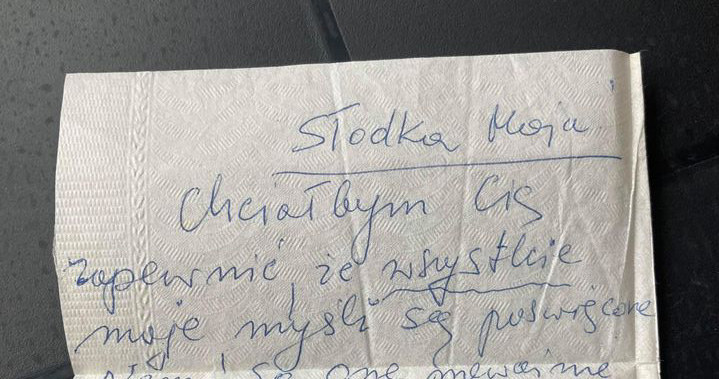 Słodka Moja
Chciałbym Cię
zapewnić, że wszystkie
moje myśli są poświęcone
są one